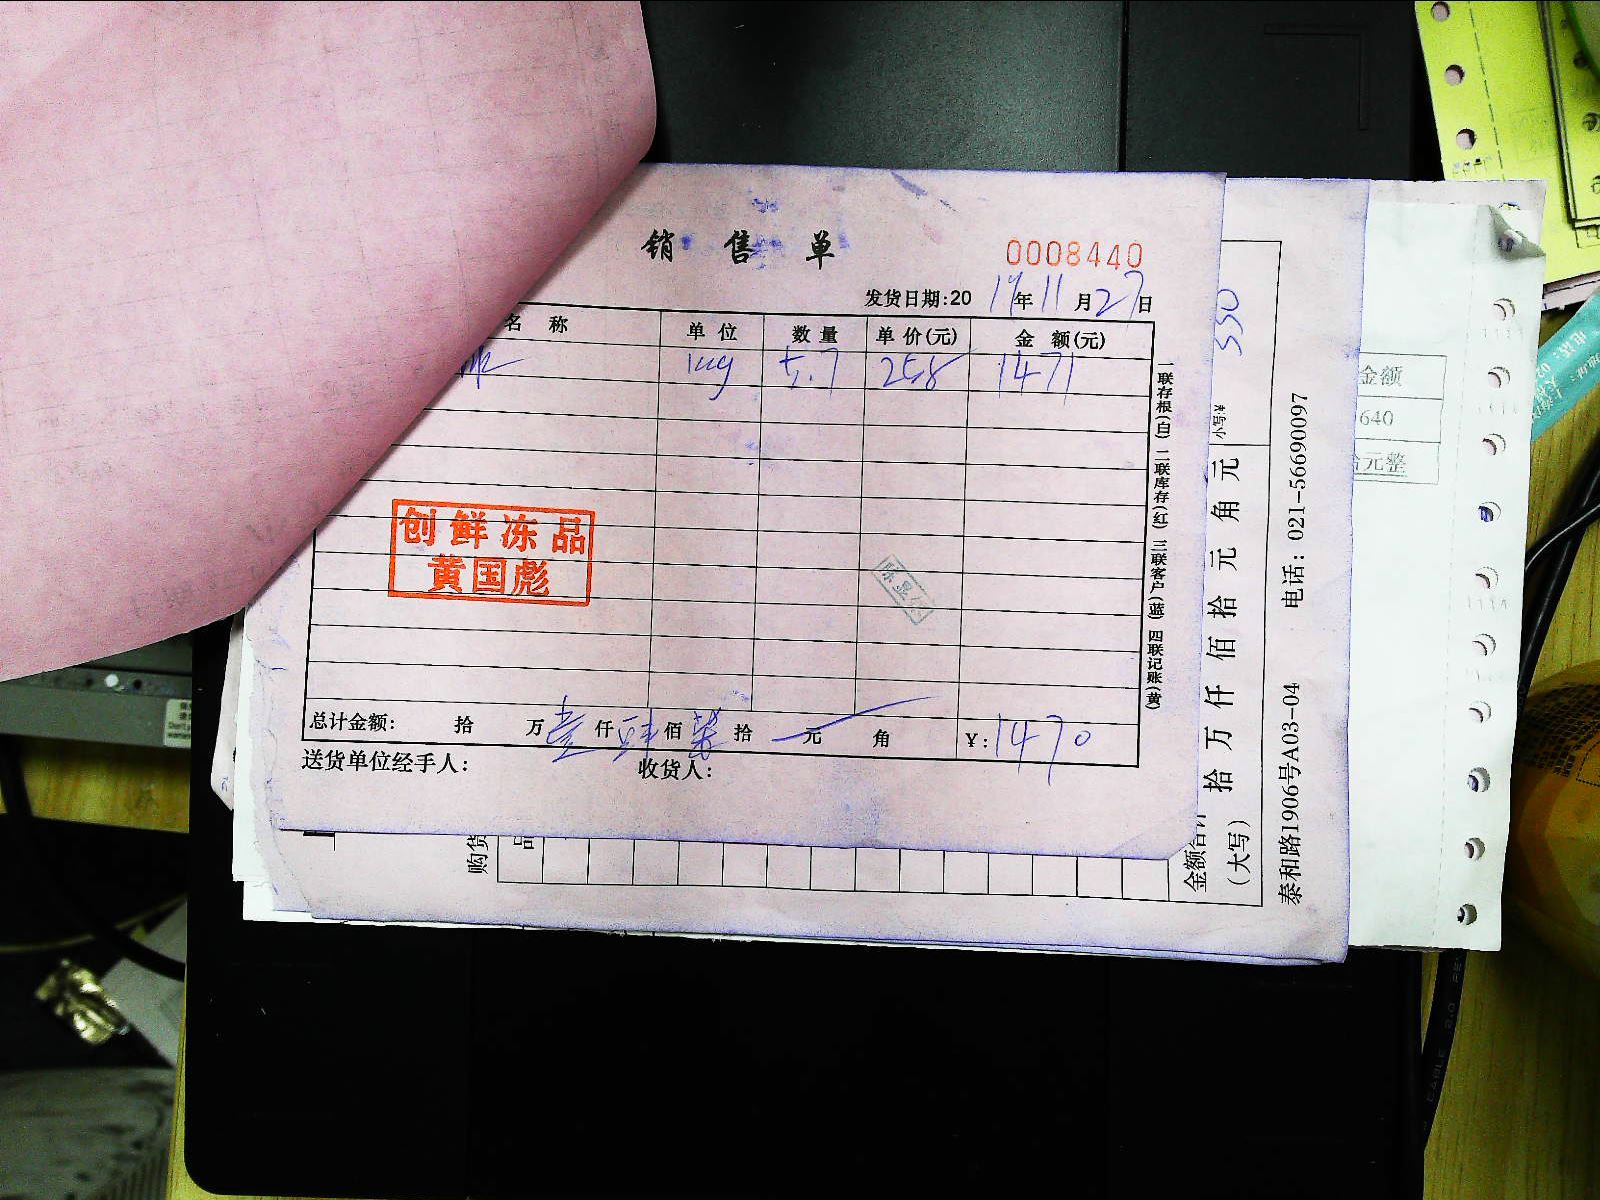 销售单
0008440
发货日期:2019年11月27日
名称 单位 数量 单价(元) 金额(元)
kg 5.7 258 1471
创鲜冻品
黄国彪
总计金额: 拾 万壹仟肆佰柒拾 元 角 ¥:1470
送货单位经手人: 收货人:
一联存根(白) 二联库存(红) 三联客户(蓝) 四联记账(黄)
小写:¥ 330
金额合计(大写) 拾 万 仟 佰 拾 元 角 元
泰和路1906号A03-04 电话:021-56690097
购货
品
金额
640
元整